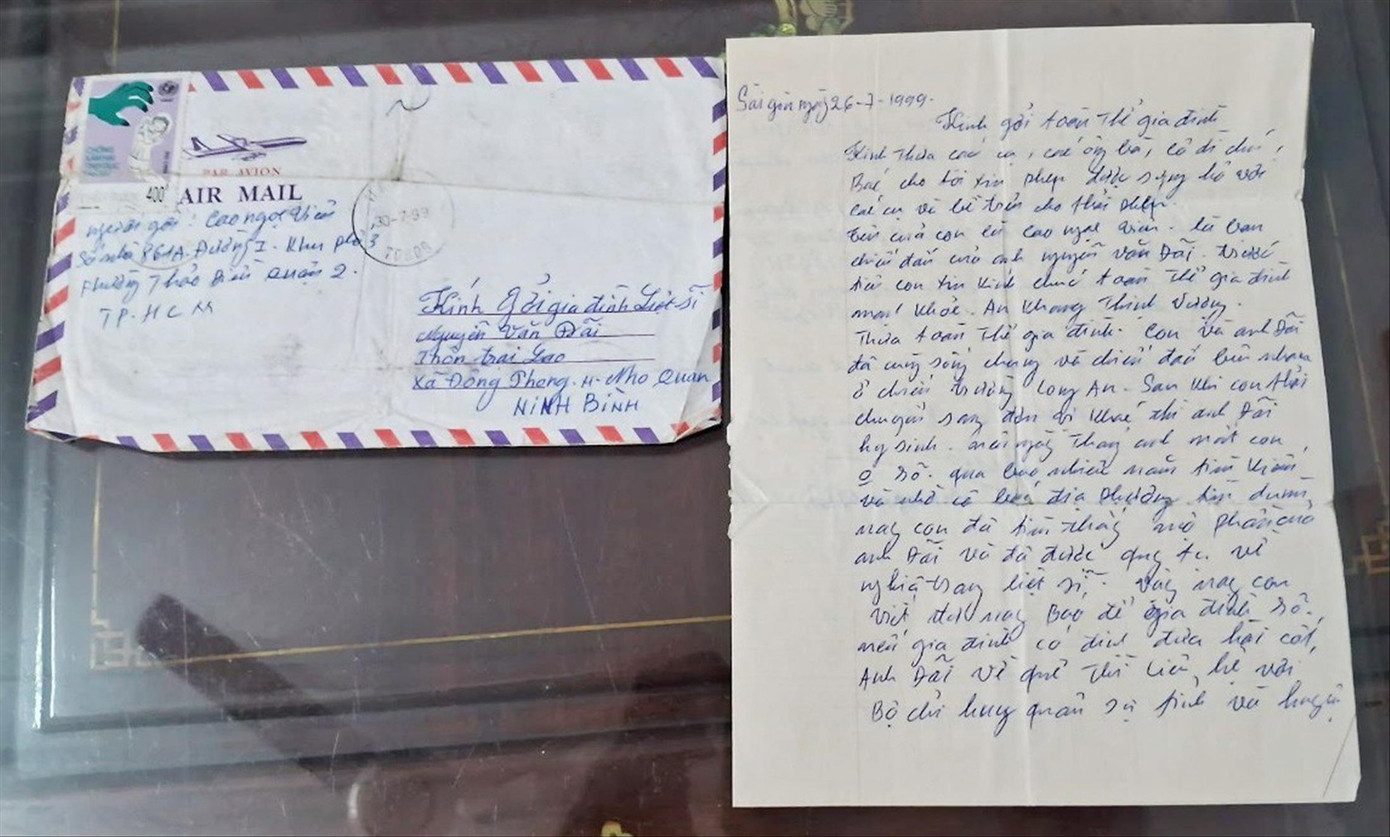 400đ
PAR AVION
AIR MAIL
30-7-99
người gởi: Cao Ngọc Viên
Số nhà 861A. Đường I. Khu phố 3
Phường Thảo Điền Quận 2.
TP. HCM
Kính Gởi gia đình Liệt Sĩ
Nguyễn Văn Đãi
Thôn trại Lao
Xã Đồng Phong. H. Nho Quan
NINH BÌNH
Sài gòn ngày 26-7-1999.
Kính gởi toàn thể gia đình
Kính thưa các cụ, các ông bà, cô dì chú,
Bác cho tôi xin phép được xưng hô với
các cụ và bề trên cho phải phép.
Tên của con là Cao ngọc Viên. là bạn
chiến đấu của anh nguyễn văn Đãi. trước
tiên con xin kính chúc toàn thể gia đình
mạnh khỏe. An Khang Thịnh Vượng.
Thưa toàn thể gia đình. Con và anh Đãi
đã cùng sống chung và chiến đấu bên nhau
ở chiến trường Long An. Sau khi con phải
chuyển sang đơn vị khác thì anh Đãi
hy sinh. ngày tháng anh mất con
o rõ. qua bao nhiêu năm tìm kiếm
và nhờ có địa phương
nay con đã tìm thấy mộ phần của
anh Đãi và đã được quy tụ về
nghĩa trang liệt sĩ. Vậy nay con
viết thư này Báo để gia đình rõ.
nếu gia đình có định đưa hài cốt,
Anh Đãi về quê thì liên hệ với
Bộ chỉ huy quân sự tỉnh và huyện